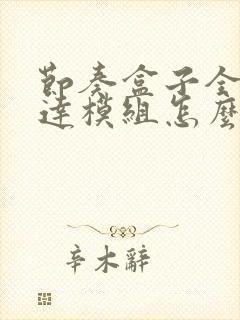 節奏盒子全
達模組怎麼
辛木辭